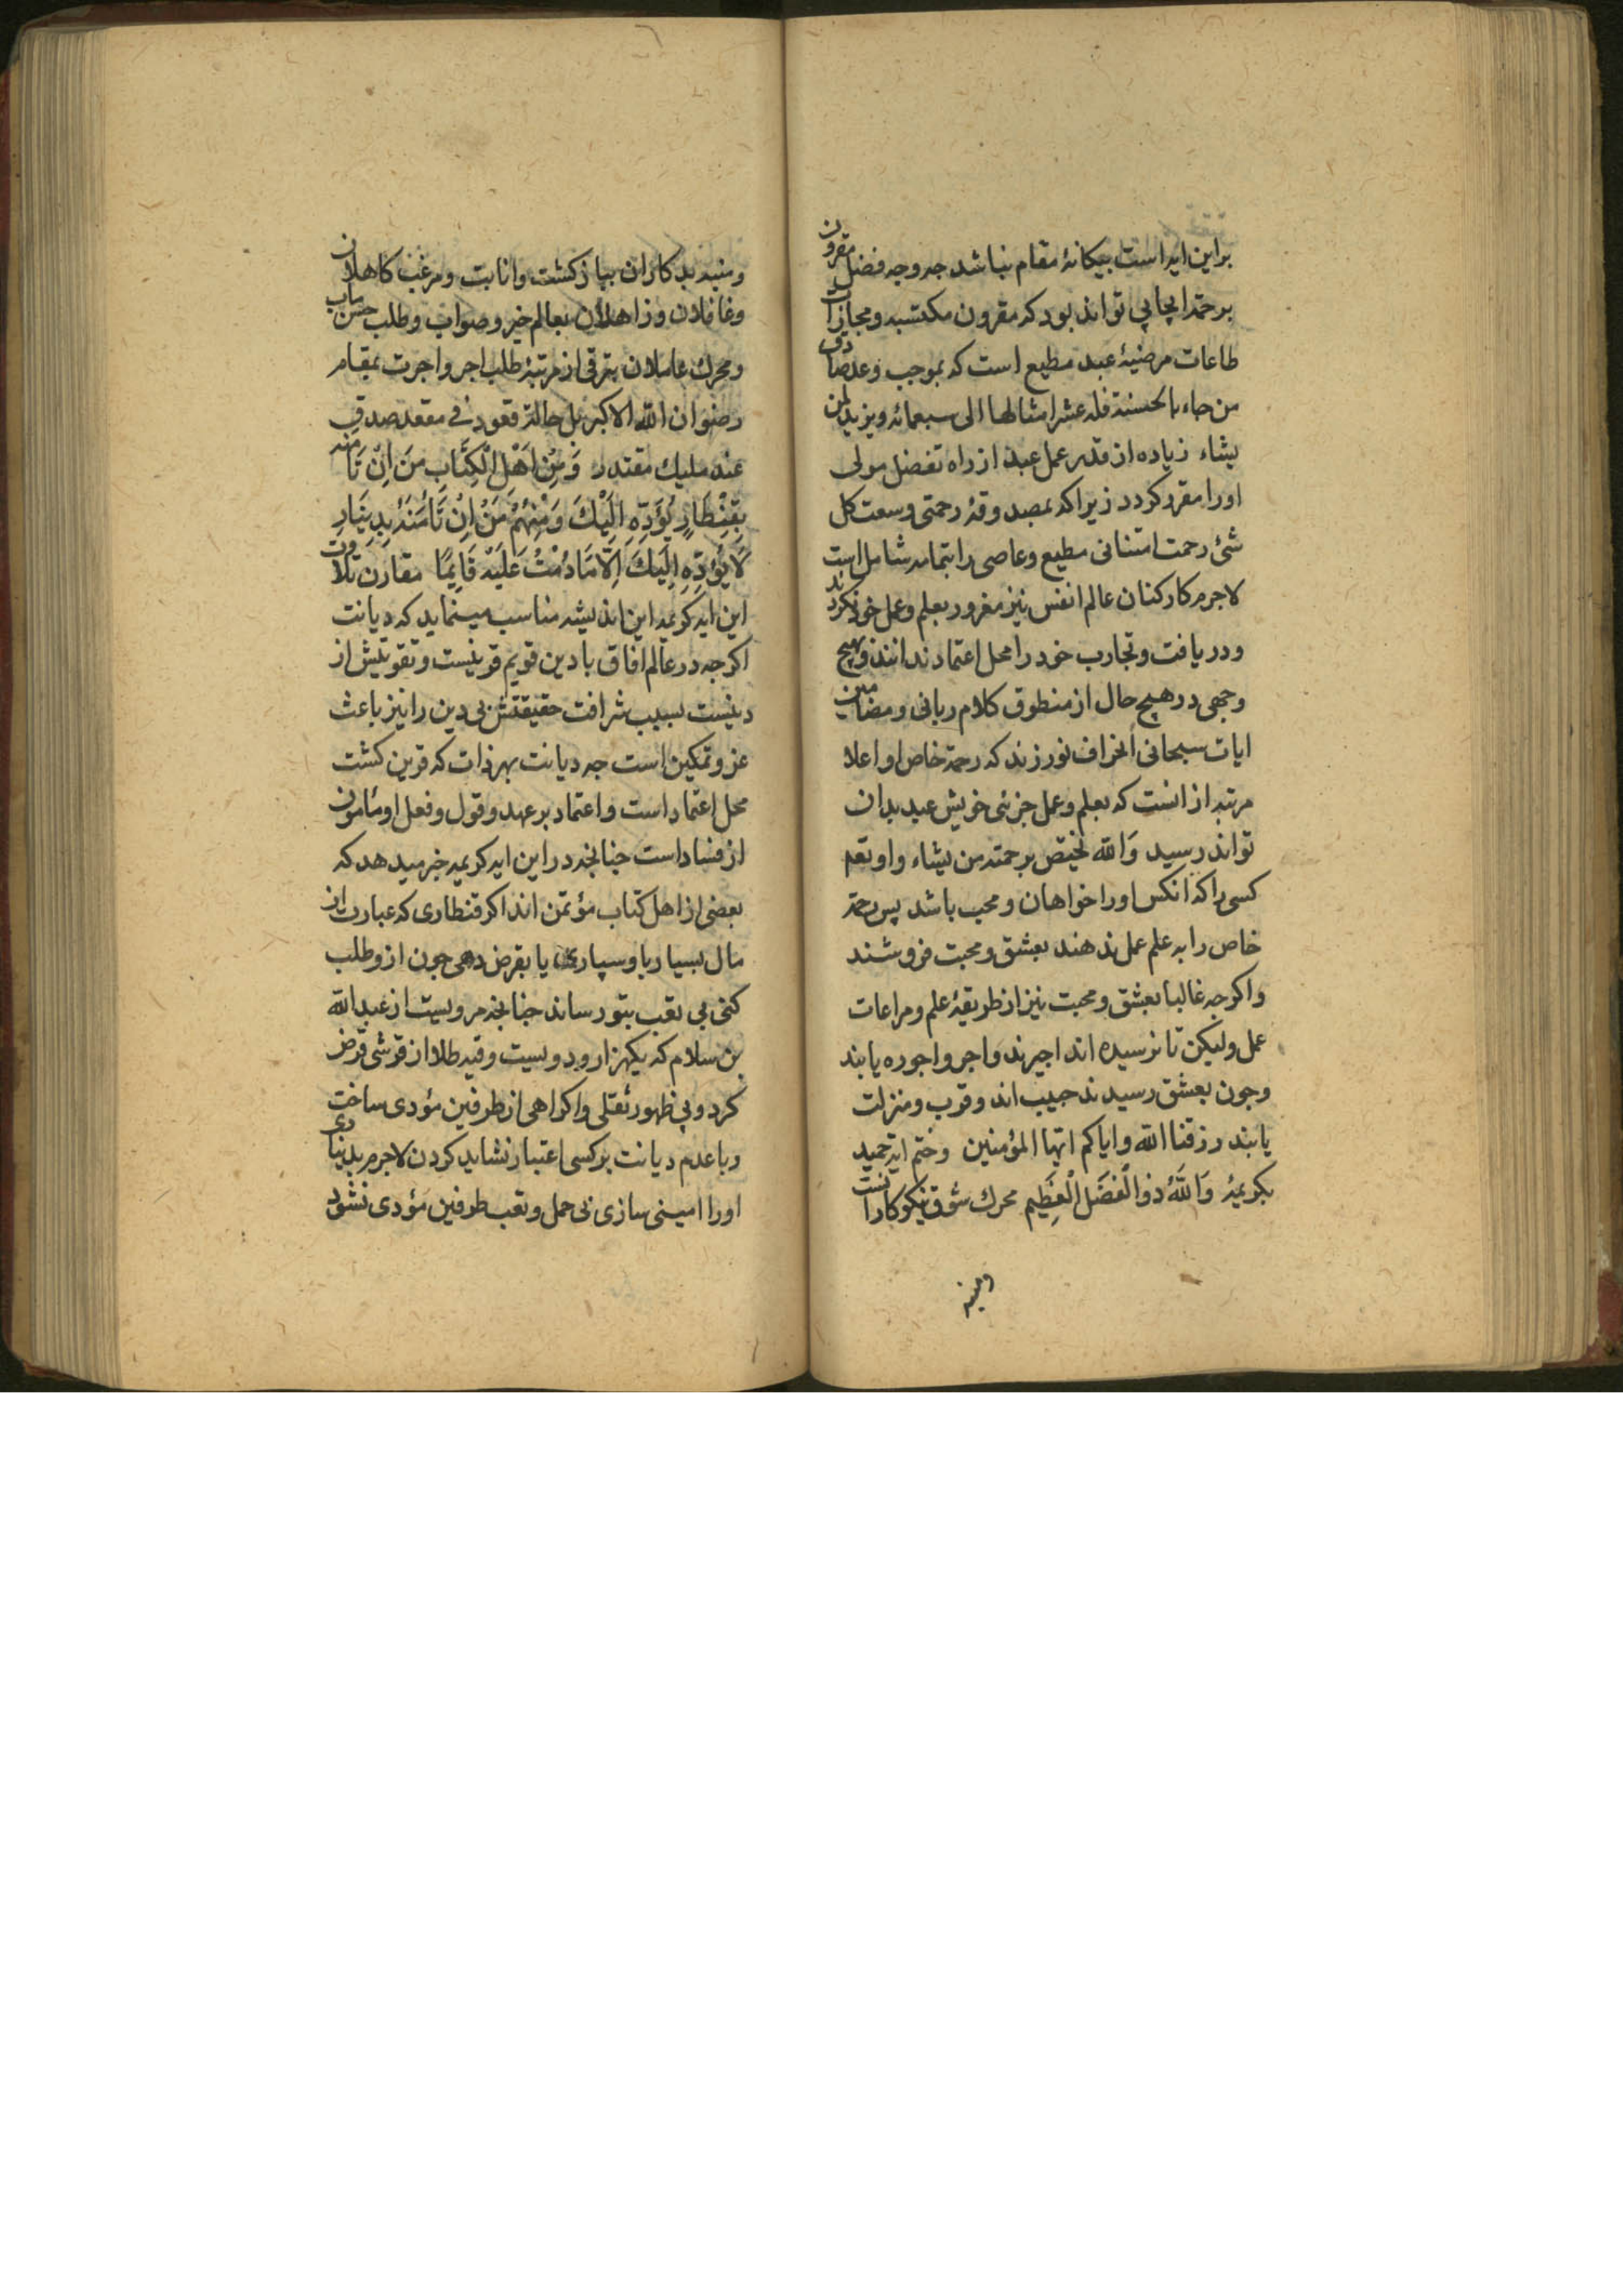 براین ایه است بیکانهٔ مقام نباشد جه وجه فضل مقرون
برحمة ایجابی تواند بود که مقرون مکتسبه و مجازات
طاعات مرضیهٔ عبد مطیع است که بموجب وعد صادق
من جاء بالحسنة فله عشر امثالها الی سبعمائه ویزید لمن
یشاء زیاده از قدر عمل عبد از راه تفضل مولی
اورا مقرر کردد زیراکه بمصدوقهٔ رحمتی وسعت کل
شئ رحمت امتنانی مطیع وعاصی را بتمامه شاملست
لاجرم کارکنان عالم انفس نیز مغرور بعلم وعمل خود نکردند
ودریافت وتجارب خود را محل اعتماد ندانند وبهیچ
وجهی درهیچ حال از منطوق کلام ربانی ومضامین
ایات سبحانی انحراف نورزند که رحمة خاص او اعلا
مرتبه ازانست که بعلم وعمل جزئی خویش عبد بدان
تواند رسید وَالله یختص برحمته من یشاء واو تعم
کسی راکه انکس اورا خواهان ومحب باشد پس رحمة
خاص را به علم عمل ندهند بعشق ومحبت فروشند
واکرجه غالبا بعشق ومحبت نیز از طریقهٔ علم ومراعات
عمل ولیکن تا نرسیده اند اجیرند واجر واجوره یابند
وجون بعشق رسیدند حبیب اند وقرب ومنزلت
یابند رزقنا الله وایاکم ایها المؤمنین وختم ایه حمید
بکریمهٔ وَاللّٰهُ ذوالْفَضْل الْعَظِیم محرك شوق نیکوکارانست
ومنبه
ومنبه بدکاران بباز کشت وانابت ومرغب کاهلان
وغافلان وزاهلان بعالم خیر وصواب وطلب حسن ماب
ومحرك عاملان بترقی از مرتبهٔ طلب اجر واجرت بمقام
رضوان الله الاکبر بل حالة قعود فی مقعد صدق
عند ملیك مقتدر وَمِنْ اَهْلِ الْکِتَابِ مَنْ اِنْ تَأمَنْه
بِقِنْطَارٍ یُؤَدِّهِ اِلَیْكَ وَمِنْهُمْ مَنْ اِنْ تَأْمَنْهُ بِدِینَارٍ
لَا یُؤَدِّهِ اِلَیْكَ اِلَّا مَا دُمْتَ عَلَیْهِ قَایِمًا مقارن تلاوت
این ایه کریمه این اندیشه مناسب مینماید که دیانت
اکرجه در عالم افاق با دین قویم قرینست وتقویتش از
دینست بسبب شرافت حقیقتش بی دین را نیز باعث
عز وتمکین است جه دیانت بهر ذات که قرین کشت
محل اعتماد است واعتماد بر عهد وقول وفعل او مأمون
از فساد است جنانجه در این ایه کریمه خبر میدهد که
بعضی از اهل کتاب مؤتمن اند اکر قنطاری که عبارت از
مال بسیار باو سپاری یا بقرض دهی جون ازو طلب
کنی بی تعب بتو رساند جنانجه مرویست از عبدالله
بن سلام که یکهزار ودویست وقیه طلا از قرشی قرض
کرد وبی ظهور ثقلی واکراهی از طرفین مؤدی ساخت
وبا عدم دیانت برکسی اعتبار نشاید کردن لاجرم بدیناری
اورا امینی سازی بی حمل وتعب طرفین مؤدی نشود